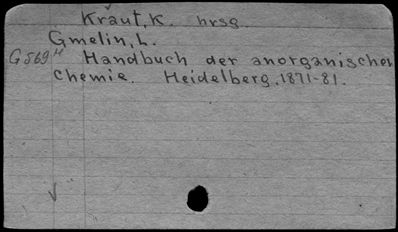 Kraut, K. hrsg.
Gmelin, L.
G569H Handbuch der anorganischen
Chemie. Heidelberg, 1871-81.